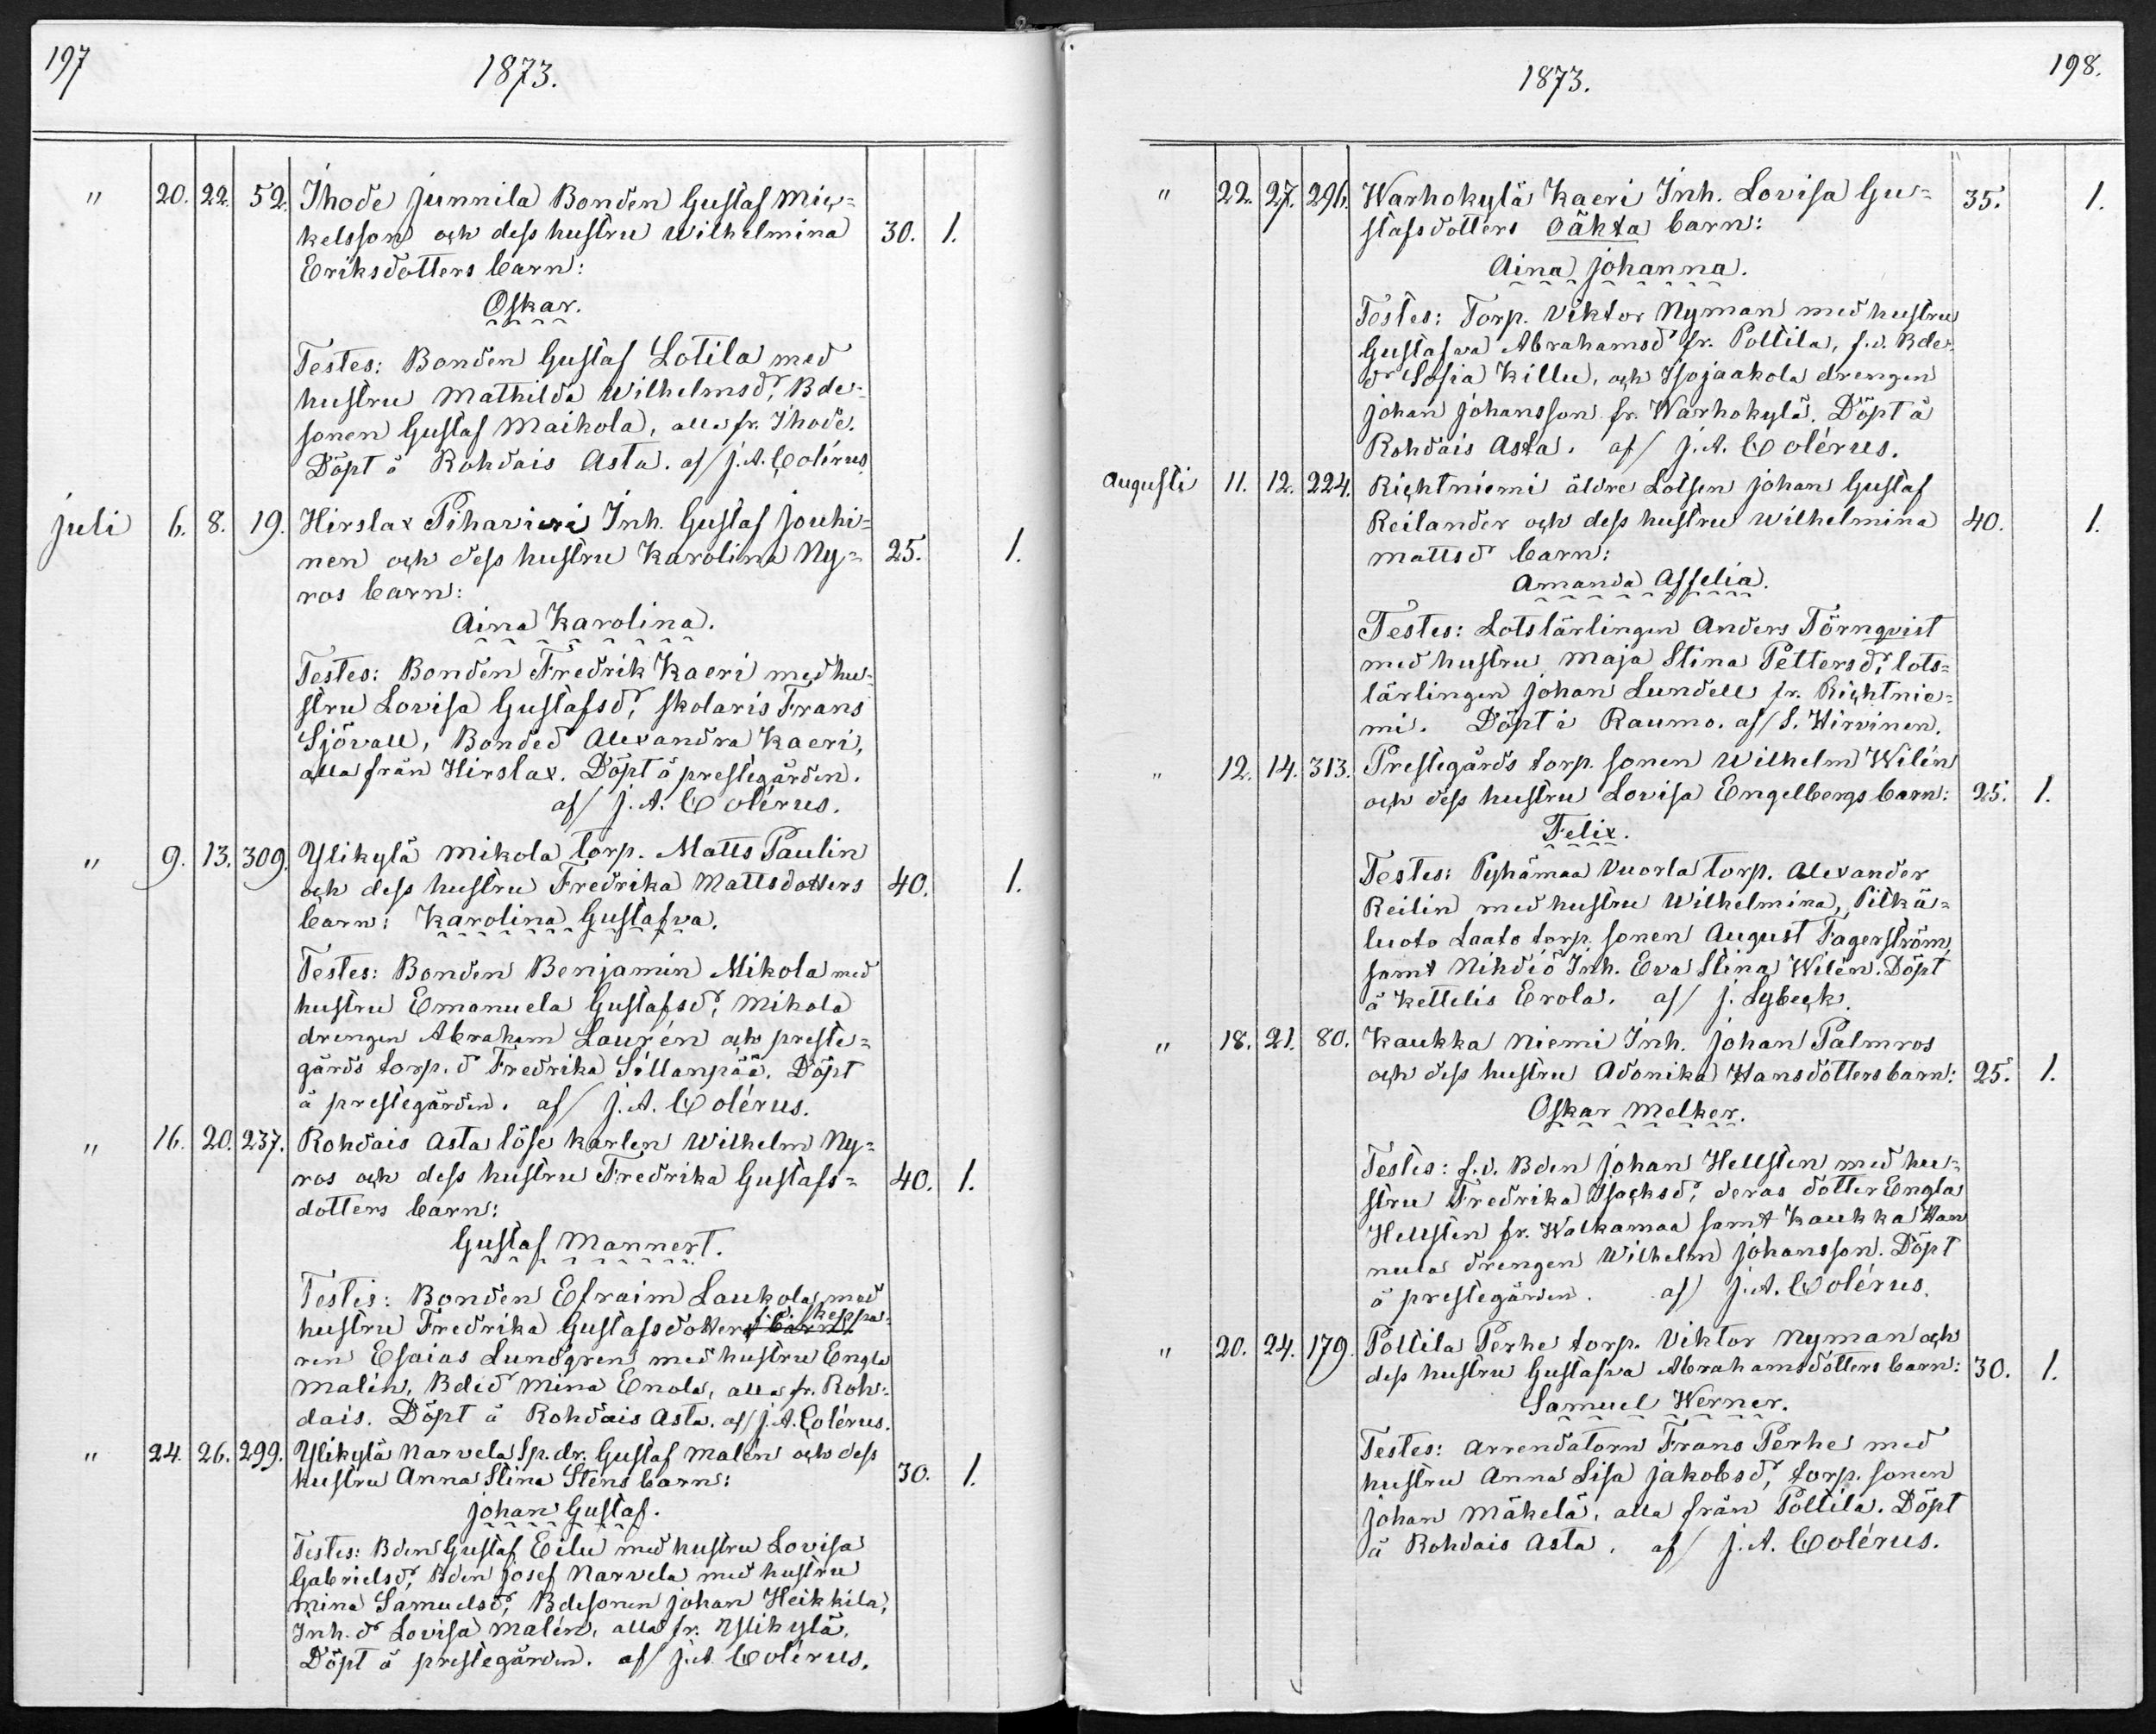 197
1873.
" 20. 22. 52. Ihode Junnila Bonden Gustaf Mic-
kelsson och dess hustru Wilhelmina 30. 1.
Eriksdotters barn:
Oskar.
Testes: Bonden Gustaf Lotila med
hustru Mathilda Wilhelmsdr, Bde-
sonen Gustaf Maihola, alla fr. Ihode.
Döpt å Rohdais Asta. af/ J.A. Colérus.
Juli 6. 8. 19. Hirslax Pihavieri Inh. Gustaf Jouhi-
nen och dess hustru Karolina Ny- 25. 1.
ros barn:
Aina Karolina.
Testes: Bonden Fredrik Kaeri med hu-
stru Lovisa Gustafsdr, skolaris Frans
Sjövall, Bonded Alexandra Kaeri,
alla från Hirslax. Döpt å prestegården.
af/ J.A. Colérus.
" 9. 13. 309. Ylikylä Mikola torp. Matts Paulin
och dess hustru Fredrika Mattsdotters 40. 1.
barn: Karolina Gustafva.
Testes: Bonden Benjamin Mikola med
hustru Emanuela Gustafsdr, Mikola
drengen Abraham Laurén och preste-
gårds torp. d Fredrika Sillanpää. Döpt
å prestegården. af/ J.A. Colérus.
" 16. 20. 237. Rohdais Asta löse karlen Wilhelm Ny-
ros och dess hustru Fredrika Gustafs- 40. 1.
dotters barn:
Gustaf Mannert.
Testes: Bonden Efraim Laukola med
hustru Fredrika Gustafsdotters barn f.d. skeppa-
ren Esaias Lundgren med hustru Engla
Malén, Bded Mina Enola, alla fr. Roh-
dais. Döpt å Rohdais Asta. af/ J.A. Colérus.
" 24. 26. 299. Ylikylä Narvela Sp. dr. Gustaf Malén och dess
hustru Anna Stina Stens barn: 30. 1.
Johan Gustaf.
Testes: Bden Gustaf Eilu med hustru Lovisa
Gabrielsdr, Bden Josef Narvela med hustru
Mina Samuelsdr, Bdesonen Johan Heikkila,
Inh. dr Lovisa Malén, alla fr. Ylikylä.
Döpt å prestegården. af/ J.A. Colérus.
198.
1873.
" 22. 27. 296. Warhokylä Kaeri Inh. Lovisa Gu- 35. 1.
stafsdotters Oäkta barn:
Aina Johanna.
Testes: Torp. Viktor Nyman med hustru
Gustafva Abrahamsdr fr. Polttila, f.d. Bde-
dr Sofia Killu, och Isojaakola drengen
Johan Johansson fr. Warhokylä. Döpt å
Rohdais Asta. af/ J.A. Colérus.
Augusti 11. 12. 224. Richtniemi äldre Lotsen Johan Gustaf
Reilander och dess hustru Wilhelmina 40. 1.
Mattsdr barn:
Amanda Asselia.
Testes: Lotslärlingen Anders Törnqvist
med hustru Maja Stina Pettersdr, lots-
lärlingen Johan Lundell fr. Richtnie-
mi. Döpt i Raumo. af/ S. Hirvinen.
" 12. 14. 313. Prestegårds torp. sonen Wilhelm Wilén
och dess hustru Lovisa Engelbergs barn: 25. 1.
Felix.
Testes: Pyhämaa Vuorla torp. Alexander
Reilin med hustru Wilhelmina, Pitkä-
luoto Laato torp. sonen August Fagerström,
samt Nihdiö Inh. Eva Stina Wilén. Döpt
å Kettelis Erola. af/ J. Lybeck.
" 18. 21. 80. Kaukka Niemi Inh. Johan Palmros
och dess hustru Adonika Hansdotters barn: 25. 1.
Oskar Melker.
Testes: f.d. Bden Johan Hellsten med hu-
stru Fredrika Isacksdr, deras dotter Engla
Hellsten fr. Walkamaa samt Kaukka Han
nula drengen Wilhelm Johansson. Döpt
å prestegården. af/ J.A. Colérus.
" 20. 24. 179. Polttila Perhe torp. Viktor Nyman och
dess hustru Gustafva Abrahamsdotters barn: 30. 1.
Samuel Werner.
Testes: Arrendatorn Frans Perhe med
hustru Anna Lisa Jakobsdr, torp. sonen
Johan Mäkelä, alla från Polttila. Döpt
å Rohdais Asta. af/ J.A. Colérus.